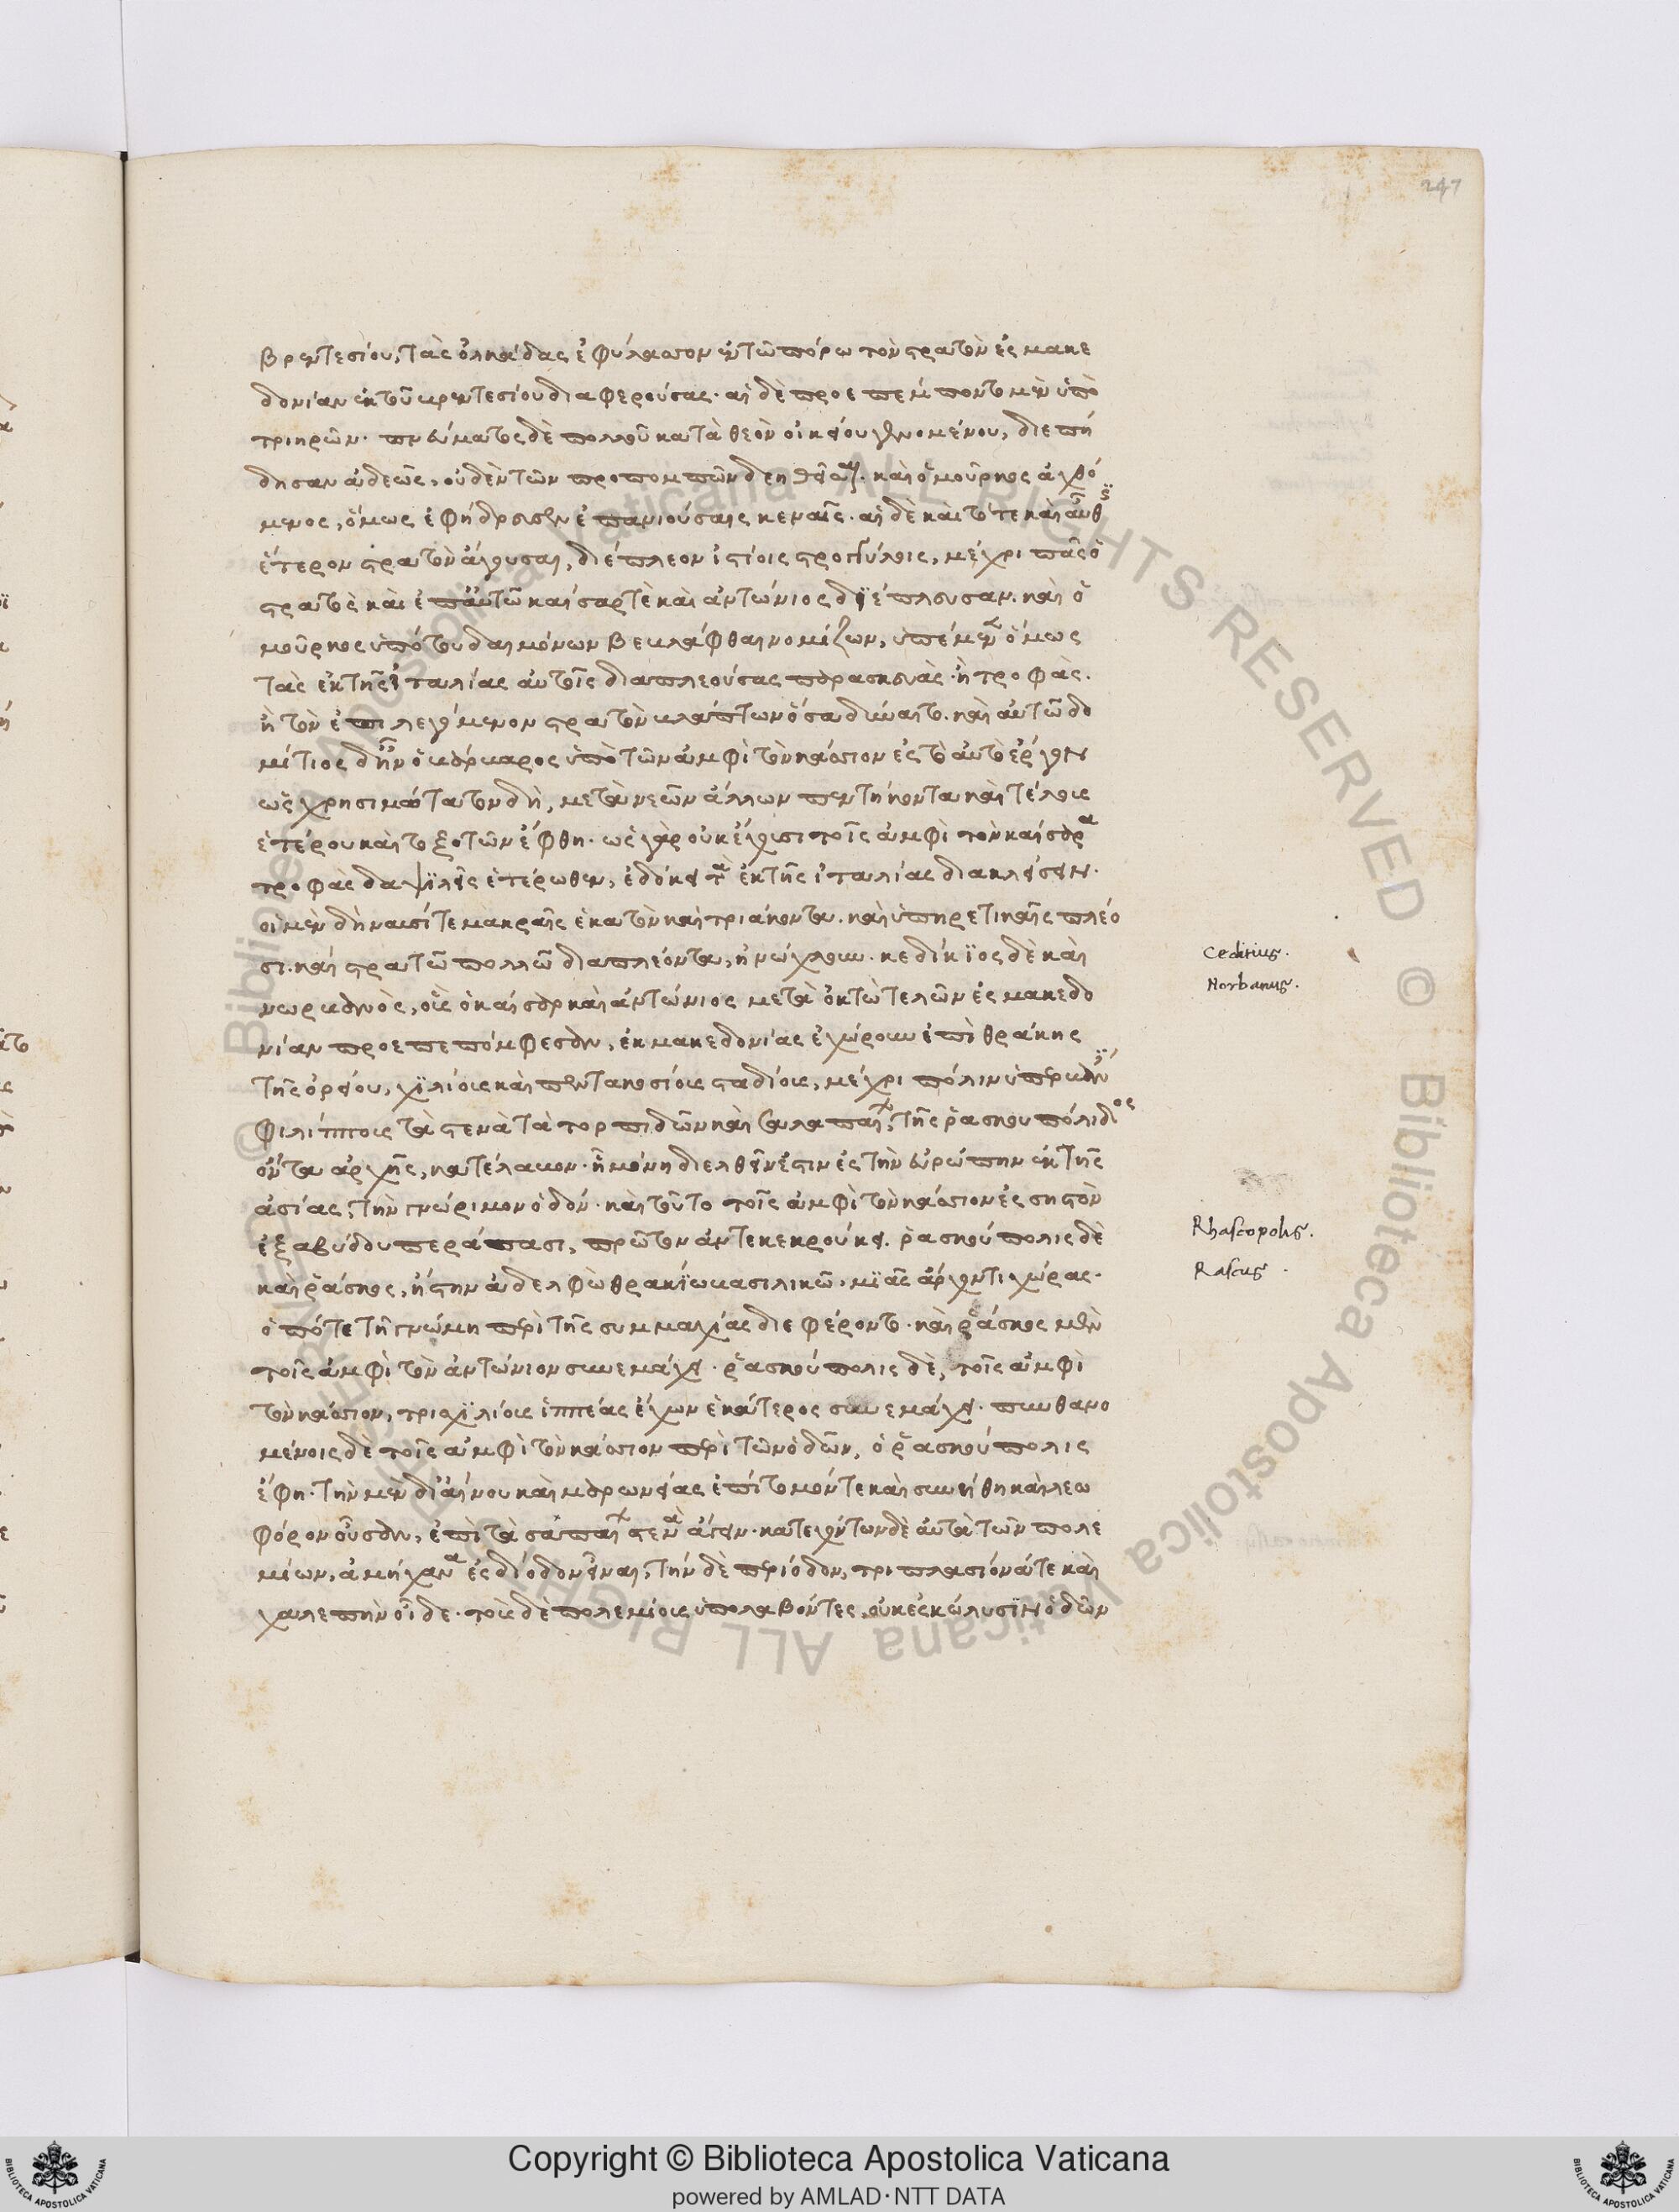 247
βρεντεσίου, τὰς ὁλκάδας ἐφύλασσον ἐν τῶ πόρω τὸν στρατὸν ἐς μακε
δονίαν ἐκ τοῦ βρεντεσίου διαφερούσας. αἱ δὲ προεπέμποντο μὲν ὑπὸ
τριηρῶν. πνεύματος δὲ πολλοῦ κατὰ θεὸν οἰκείου γενομένου, διεπή
δησαν ἀδεῶς, οὐδὲν τῶν προπομπῶν δεηθεῖσαι. καὶ ὁ μοῦρκος ἀχθό
μενος, ὅμως ἐφήδρευεν ἐπανιούσαις κεναῖς. αἱ δὲ καὶ τότε καὶ αὖθις
ἕτερον στρατὸν ἄγουσαι, διέπλεον ἱστίοις στρογγύλοις, μέχρι πᾶς ὁ
στρατὸς καὶ ἐπ' αὐτῶ καῖσάρ τε καὶ ἀντώνιος διέπλευσαν. καὶ ὁ
μοῦρκος ὑπό του δαιμόνων βεβλάφθαι νομίζων, ὑπέμενεν ὅμως
τὰς ἐκ τῆς ἰταλίας αὐτοῖς διαπλεούσας παρασκευὰς ἢ τροφὰς.
ἢ τὸν ἐπιλεγόμενον στρατὸν βλάπτων ὅσα δύναιτο. καὶ αὐτῶ δο
μίτιος δ' ἦν ὁ ἀηνόβαρβος ὑπὸ τῶν ἀμφὶ τὸν κάσσιον ἐς τὸ αὐτὸ ἔργον
ὡς χρησιμώτατον δὴ, μετὰ νεῶν ἄλλων πεντήκοντα καὶ τέλους
ἑτέρου καὶ τοξοτῶν ἐπέμφθη. ὡς γὰρ οὐκ ἔχουσι τοῖς ἀμφὶ τὸν καίσαρα
τροφὰς δαψιλεῖς ἑτέρωθεν, ἐδόκει τὰ ἐκ τῆς ἰταλίας διακλείειν.
οἱ μὲν δὴ ναυσί τε μακραῖς ἑκατὸν καὶ τριάκοντα. καὶ ὑπηρετικαῖς πλέο
σι. καὶ στρατῶ πολλῶ διαπλέοντες, ἠνώχλουν. κεδίκιος δὲ καὶ
νωρβανὸς, οὓς ὁ καῖσαρ καὶ ἀντώνιος μετὰ ὀκτὼ τελῶν ἐς μακεδο
νίαν προεπεπόμφεσαν, ἐκ μακεδονίας ἐχώρουν ἐπὶ θράκης
τῆς ὀρείου, χιλίους καὶ πεντακοσίους σταδίους, μέχρι πόλιν ὑπερβάντες
φιλίππους τὰ στενὰ τὰ τορπιδῶν καὶ σαπαίων τῆς ῥασκουπόλιδος
ὄντα ἀρχῆς, κατέλαβον. ᾗ μόνη διελθεῖν ἔστιν ἐς τὴν εὐρώπην ἐκ τῆς
ἀσίας, τὴν γνώριμον ὁδόν. καὶ τοῦτο τοῖς ἀμφὶ τὸν κάσσιον ἐς σηστὸν
ἐξ ἀβύδου περάσασι, πρῶτον ἀντεκεκρούκει. ῥασκούπολις δὲ
καὶ ῥάσκος, ἤστην ἀδελφὼ θρακίω βασιλικῶ. μιᾶς ἄρχοντε χώρας.
οἳ τότε τῆ γνώμη περὶ τῆς συμμαχίας διεφέροντο. καὶ ῥάσκος μὲν
τοῖς ἀμφὶ τὸν ἀντώνιον συνεμάχει. ῥασκούπολις δὲ, τοῖς ἀμφὶ
τὸν κάσσιον, τρισχιλίους ἱππέας ἔχων ἑκάτερος συνεμάχει. πυνθανο
μένοις δὲ τοῖς ἀμφὶ τὸν κάσσιον περὶ τῶν ὁδῶν, ὁ ῥασκούπολις
ἔφη. τὴν μὲν δι' αἴνου καὶ μαρωνείας ἐπίτομόν τε καὶ συνήθη καὶ λεω
φόρον οὖσαν, ἐπὶ τὰ σαπαίων στενὰ ἄγειν. κατεχόντων δὲ αὐτὰ τῶν πολε
μίων, ἀμήχανα ἐς δίοδον εἶναι, τὴν δὲ περίοδον, τριπλασίονά τε καὶ
χαλεπὴν οἱ δὲ. τοὺς δὲ πολεμίους ὑπολαβόντες, οὐκ ἐς κώλυσιν ὁδῶν
Ceditius.
Norbanus.
Rhascopolis.
Rascus.